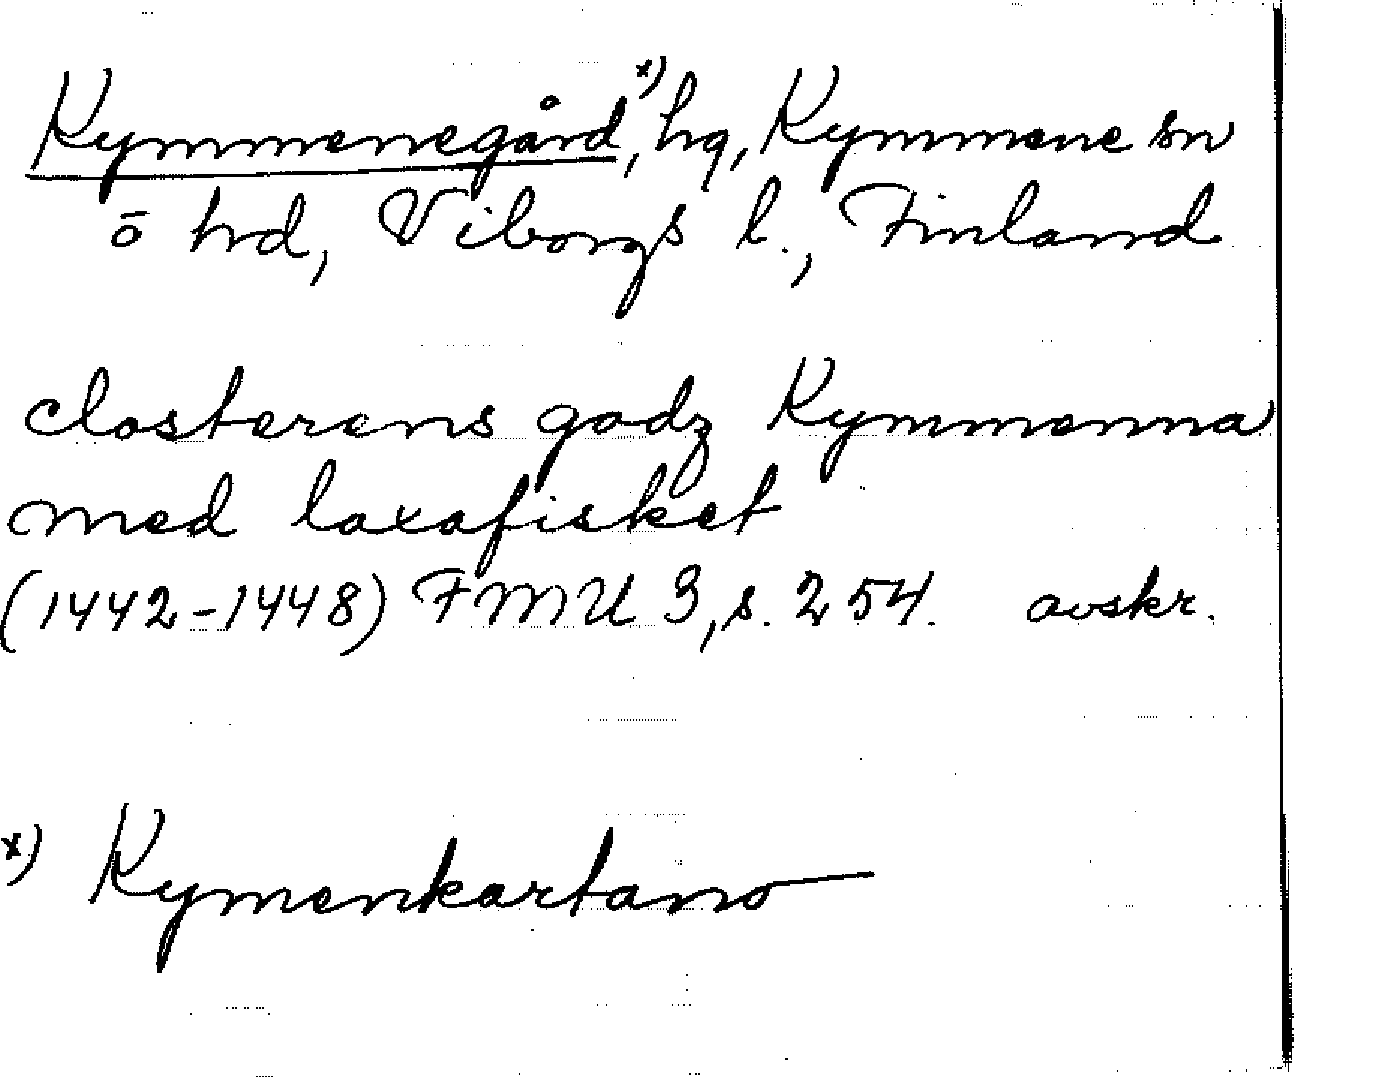 Kymmenegård,ˣ⁾ hg, Kymmene sn
ō hrd, Viborgs l., Finland
closterens godz Kymmenna
med laxafisket
(1442-1448) FMU 3, s. 254. avskr.
x) Kymenkartano